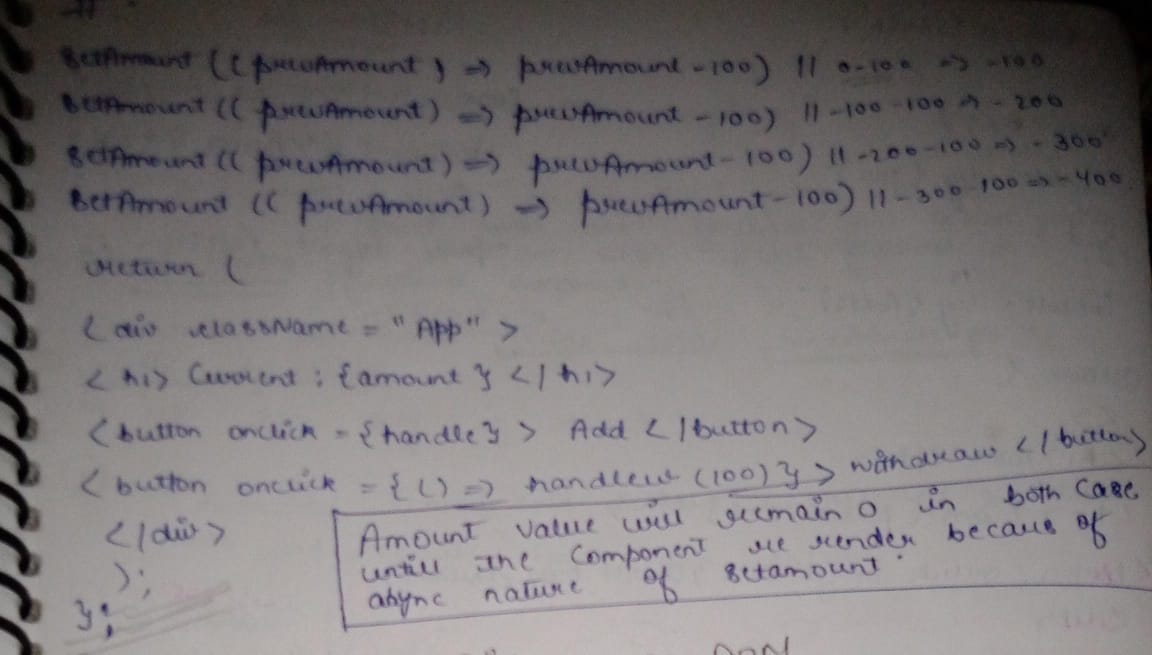 SetAmount (( prevAmount ) => prevAmount - 100) // 0-100 => -100
SetAmount (( prevAmount) => prevAmount - 100) // -100 -100 => - 200
SetAmount (( prevAmount) => prevAmount - 100) // -200-100 => - 300
SetAmount (( prevAmount) => prevAmount - 100) // - 300 100 => -400
return (
< div className = "App" >
< h1> Current : {amount } </ h1>
< button onclick = {handle } > Add < /button>
< button onclick = { () => handlew (100) } > withdraw < / button>
</div>
);
};
Amount value will remain 0 in both case
untill the component re render becaus of
async nature of setamount .